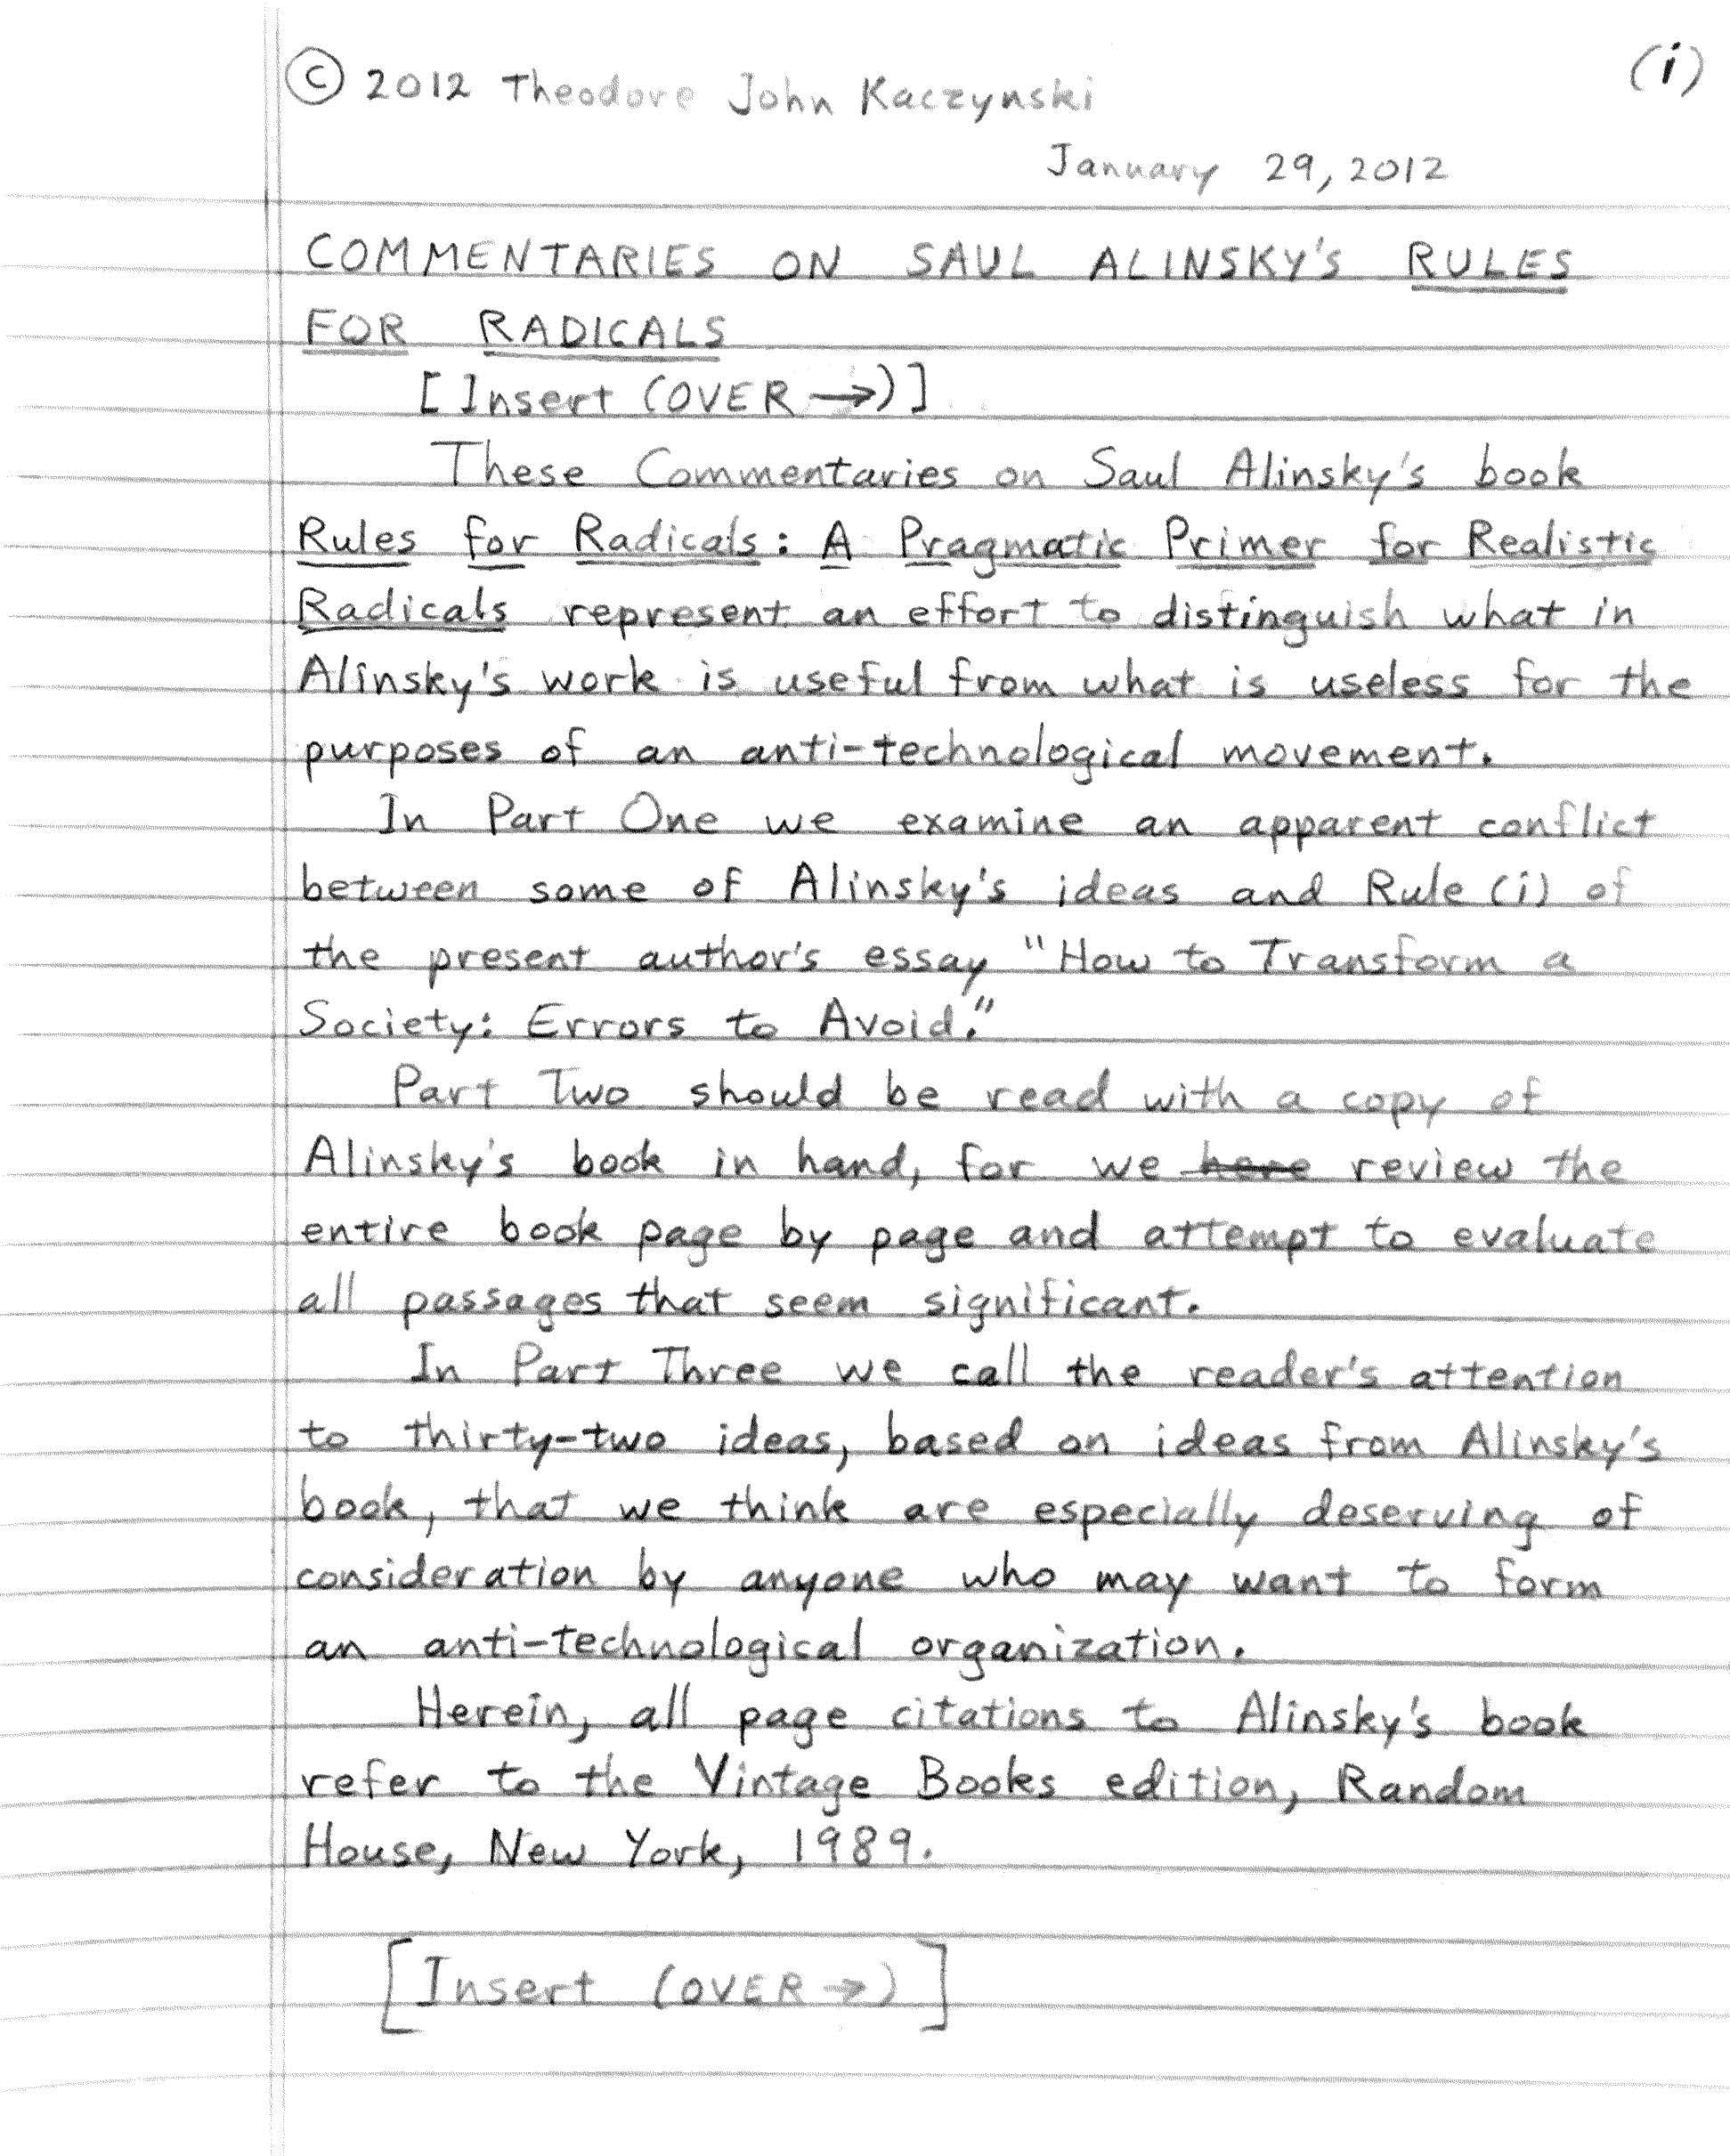 © 2012 Theodore John Kaczynski (i)
January 29, 2012
COMMENTARIES ON SAUL ALINSKY'S RULES
FOR RADICALS
[Insert (OVER →)]
These Commentaries on Saul Alinsky's book
Rules for Radicals: A Pragmatic Primer for Realistic
Radicals represent an effort to distinguish what in
Alinsky's work is useful from what is useless for the
purposes of an anti-technological movement.
In Part One we examine an apparent conflict
between some of Alinsky's ideas and Rule (i) of
the present author's essay "How to Transform a
Society: Errors to Avoid."
Part Two should be read with a copy of
Alinsky's book in hand, for we here review the
entire book page by page and attempt to evaluate
all passages that seem significant.
In Part Three we call the reader's attention
to thirty-two ideas, based on ideas from Alinsky's
book, that we think are especially deserving of
consideration by anyone who may want to form
an anti-technological organization.
Herein, all page citations to Alinsky's book
refer to the Vintage Books edition, Random
House, New York, 1989.
[Insert (OVER →)]